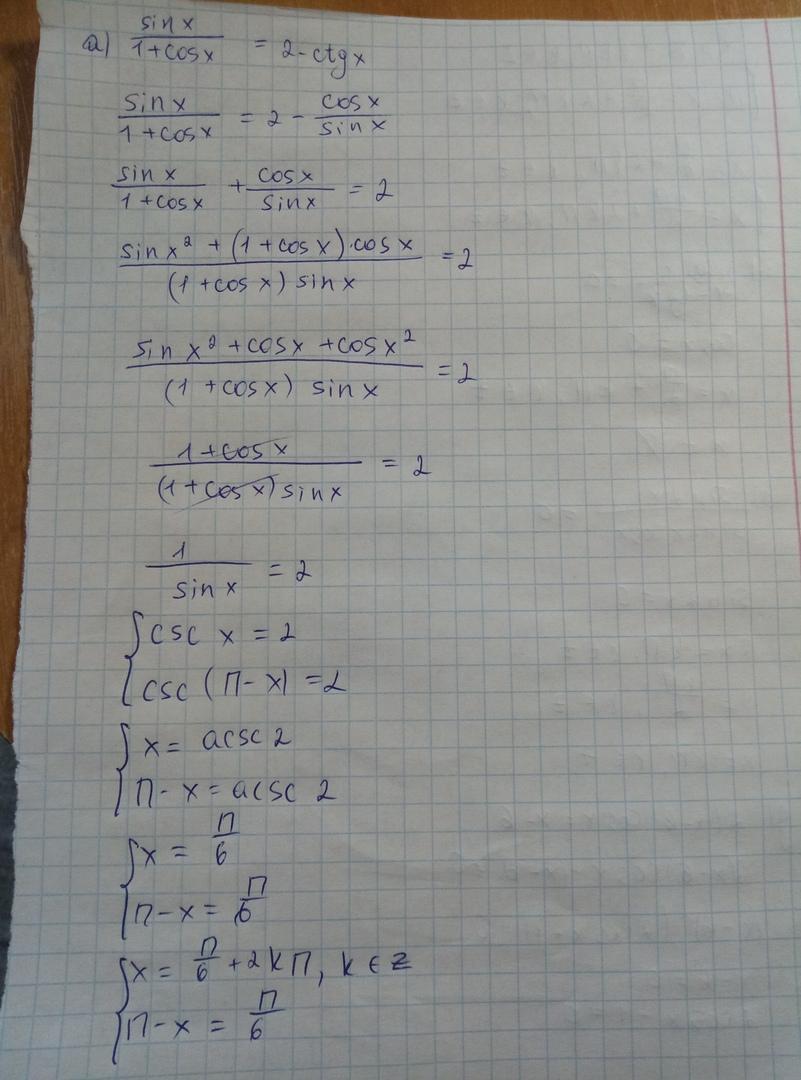 а) sin x / 1+cosx = 2-ctgx
sin x / 1+cosx = 2 - cosx / sin x
sin x / 1+cosx + cosx / sinx = 2
sinx² + (1+cosx)·cosx / (1+cosx) sinx = 2
sin x² + cosx + cosx² / (1+cosx) sin x = 2
1+cosx / (1+cosx) sinx = 2
1 / sin x = 2
{ csc x = 2
csc (П-x) = 2
{ x = acsc 2
П-x = acsc 2
{ x = П/6
П-x = П/6
{ x = П/6 + 2kП, k ∈ Z
П-x = П/6